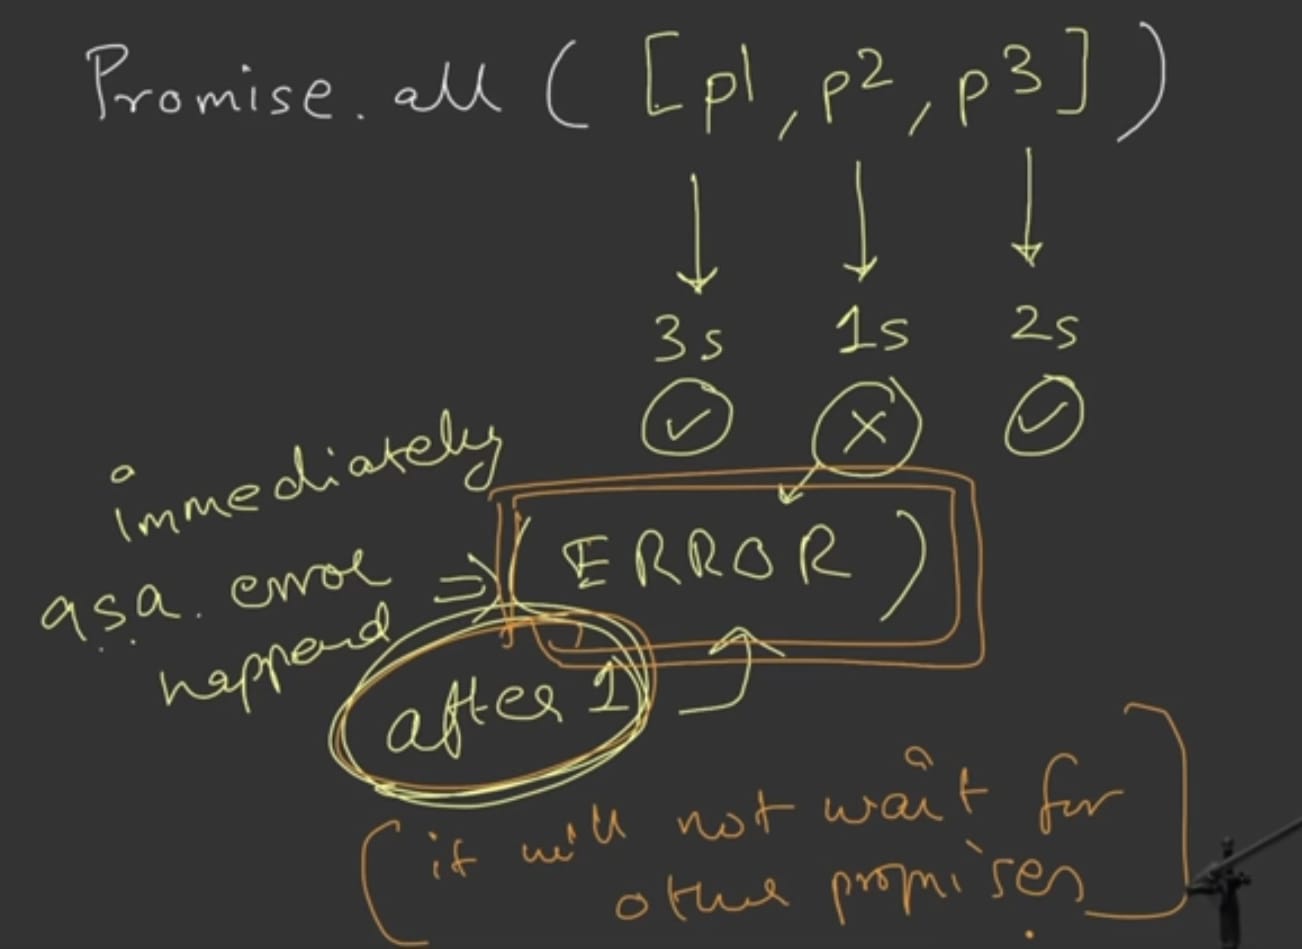 Promise.all ( [p1, p2, p3] )
3s 1s 2s
immediately
a.s.a. error
happend
=> ( ERROR )
after 1
(it will not wait for
other promises.